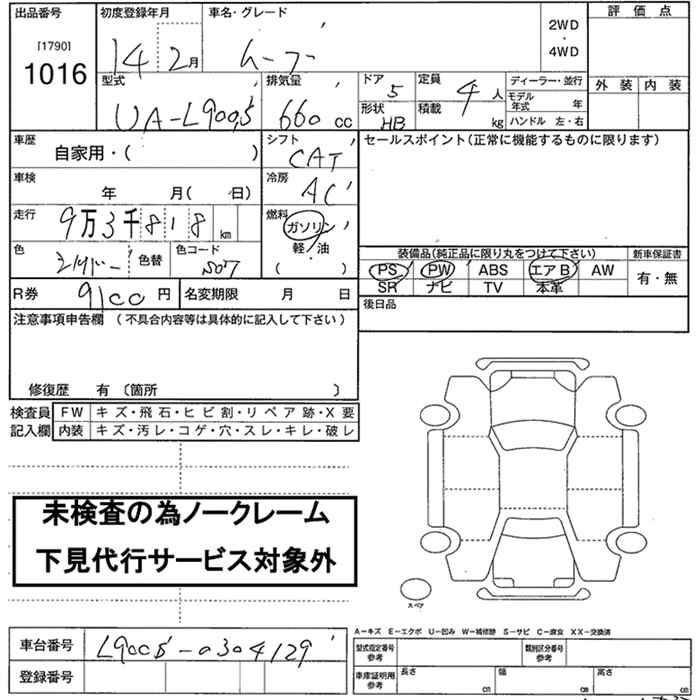 出品番号 初度登録年月 車名・グレード 2WD ・ 4WD 評価点
[1790]
1016 14年 2月 ムーブ
型式 排気量 ドア 5 定員 4人 ディーラー・並行 外装 内装
UA-L900S 660 cc 形状 HB 積載 kg モデル年式 年
ハンドル 左・右
車歴 自家用・( ) シフト CAT セールスポイント(正常に機能するものに限ります)
車検 年 月( 日) 冷房 AC
走行 9万3千818 km 燃料 ガソリン
軽・油
( )
色 シルバー 色替 色コード S07
装備品(純正品に限り丸をつけて下さい) 新車保証書
PS PW ABS エアB AW 有・無
SR ナビ TV 本革
R券 9100円 名変期限 月 日 後日品
注意事項申告欄 (不具合内容等は具体的に記入して下さい)
修復歴 有 (箇所 )
検査員 FW キズ・飛石・ヒビ割・リペア跡・X要
記入欄 内装 キズ・汚レ・コゲ・穴・スレ・キレ・破レ
未検査の為ノークレーム
下見代行サービス対象外
スペア
車台番号 L900S-0304129
登録番号
A-キズ E-エクボ U-凹み W-補修跡 S-サビ C-腐食 XX-交換済
型式指定番号 参考 類別区分番号 参考
車庫証明用 参考 長さ cm 幅 cm 高さ cm